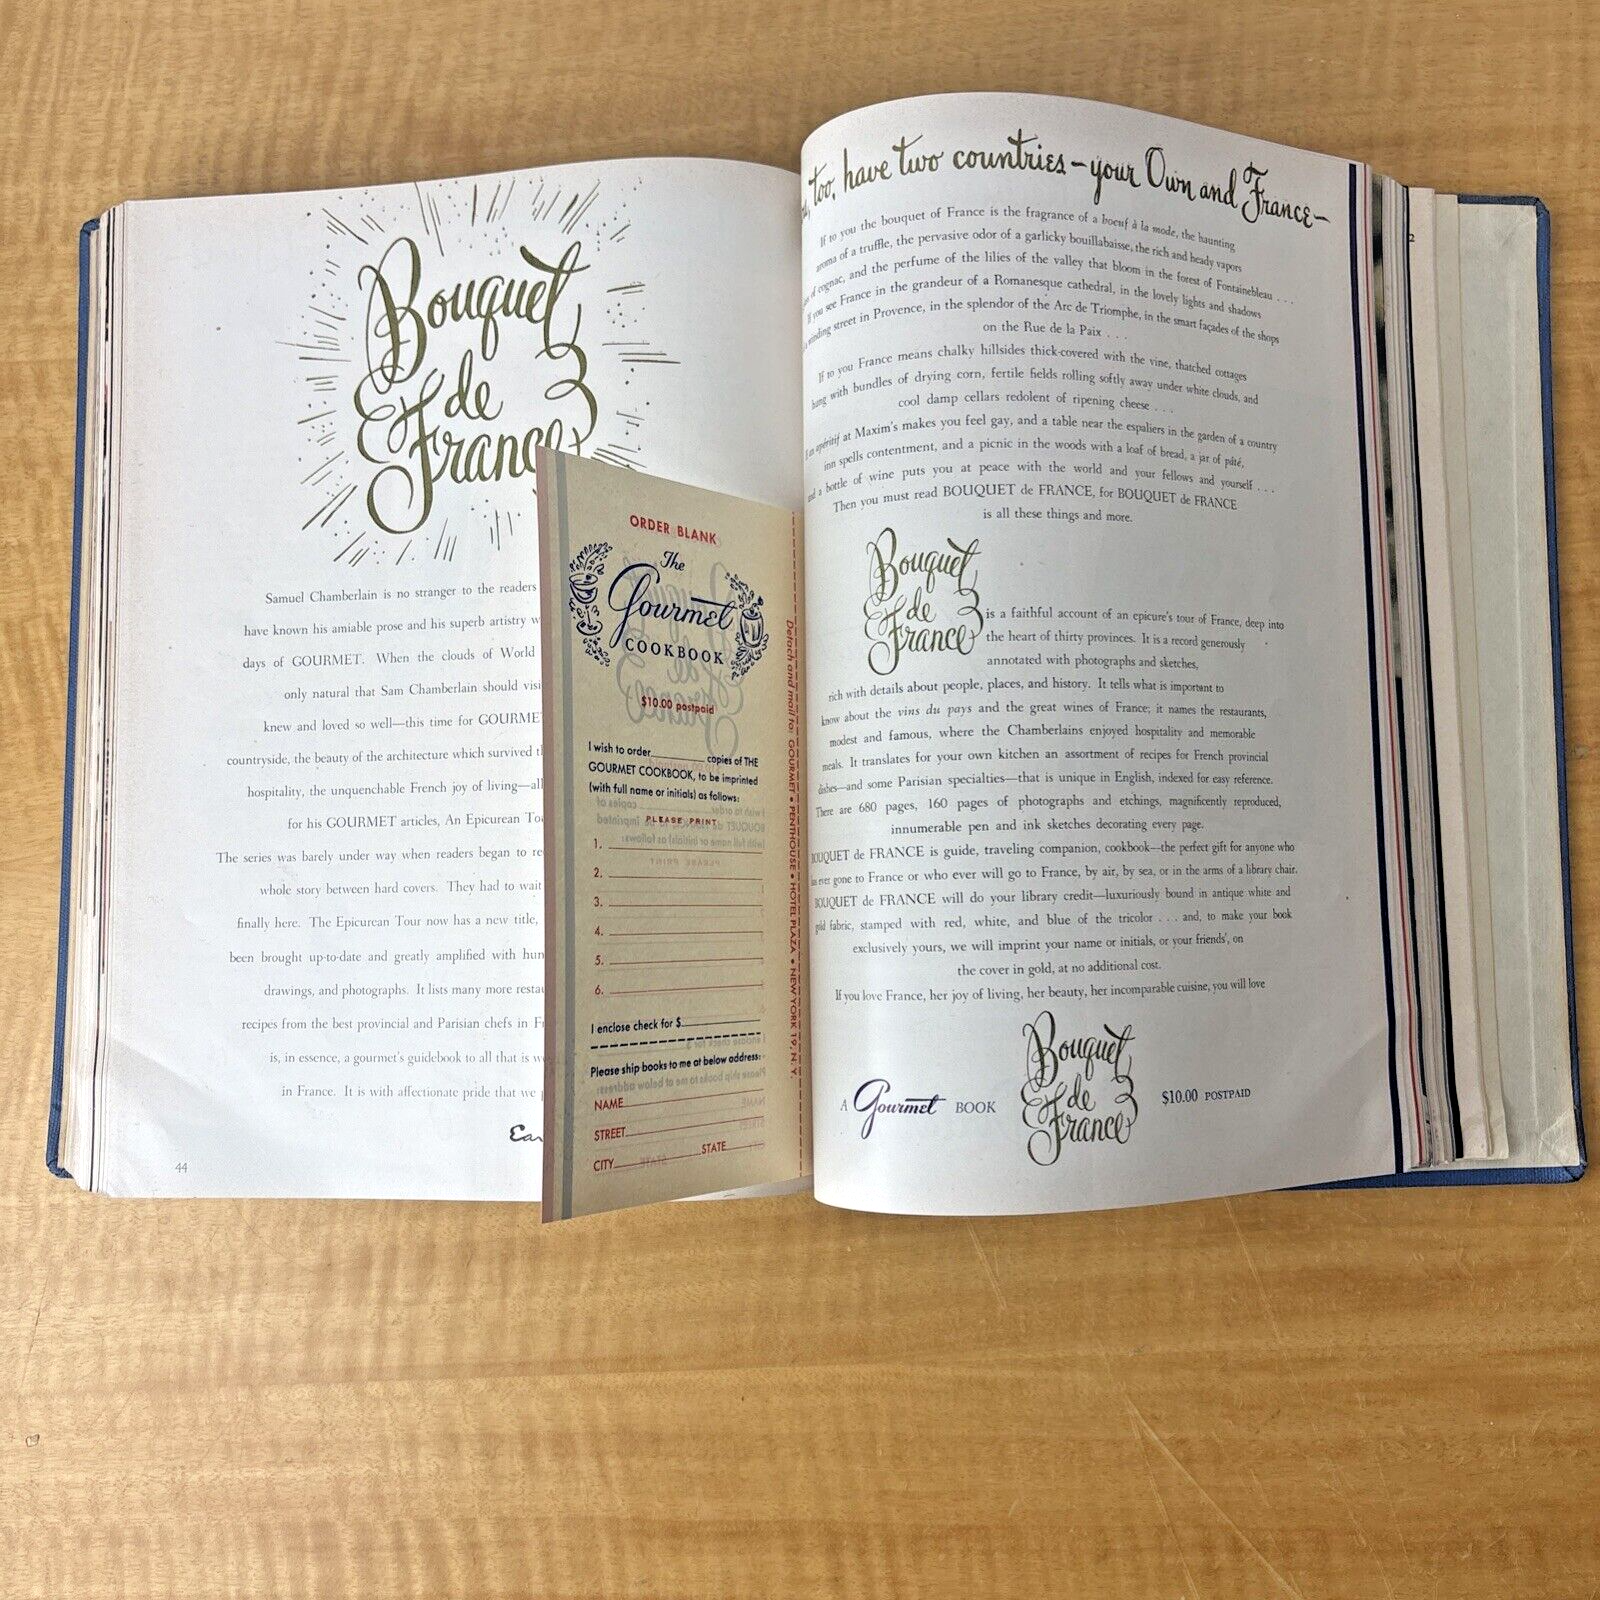 Bouquet
de
France
Samuel Chamberlain is no stranger to the readers
have known his amiable prose and his superb artistry
days of GOURMET. When the clouds of World
only natural that Sam Chamberlain should
knew and loved so well—this time for GOURMET
countryside, the beauty of the architecture which survived
hospitality, the unquenchable French joy of living—all
for his GOURMET articles, An Epicurean
The series was barely under way when readers began to
whole story between hard covers. They had to wait
finally here. The Epicurean Tour now has a new title,
been brought up-to-date and greatly amplified with
drawings, and photographs. It lists many more
recipes from the best provincial and Parisian chefs in
is, in essence, a gourmet's guidebook to all that is
in France. It is with affectionate pride that we
44
ORDER BLANK
The
Gourmet
COOKBOOK
$10.00 postpaid
I wish to order copies of THE
GOURMET COOKBOOK, to be imprinted
(with full name or initials) as follows:
PLEASE PRINT
1.
2.
3.
4.
5.
6.
I enclose check for $
Please ship books to me at below address:
NAME
STREET
CITY STATE
Detach and mail to: GOURMET • PENTHOUSE • HOTEL PLAZA • NEW YORK 19, N. Y.
too, have two countries—your Own and France—
If to you the bouquet of France is the fragrance of a boeuf à la mode, the haunting
aroma of a truffle, the pervasive odor of a garlicky bouillabaisse, the rich and heady vapors
of cognac, and the perfume of the lilies of the valley that bloom in the forest of Fontainebleau . . .
If you see France in the grandeur of a Romanesque cathedral, in the lovely lights and shadows
winding street in Provence, in the splendor of the Arc de Triomphe, in the smart façades of the shops
on the Rue de la Paix . . .
If to you France means chalky hillsides thick-covered with the vine, thatched cottages
hung with bundles of drying corn, fertile fields rolling softly away under white clouds, and
cool damp cellars redolent of ripening cheese . . .
apéritif at Maxim's makes you feel gay, and a table near the espaliers in the garden of a country
inn spells contentment, and a picnic in the woods with a loaf of bread, a jar of pâté,
and a bottle of wine puts you at peace with the world and your fellows and yourself . . .
Then you must read BOUQUET de FRANCE, for BOUQUET de FRANCE
is all these things and more.
Bouquet
de
France
is a faithful account of an epicure's tour of France, deep into
the heart of thirty provinces. It is a record generously
annotated with photographs and sketches,
rich with details about people, places, and history. It tells what is important to
know about the vins du pays and the great wines of France; it names the restaurants,
modest and famous, where the Chamberlains enjoyed hospitality and memorable
meals. It translates for your own kitchen an assortment of recipes for French provincial
dishes—and some Parisian specialties—that is unique in English, indexed for easy reference.
There are 680 pages, 160 pages of photographs and etchings, magnificently reproduced,
innumerable pen and ink sketches decorating every page.
BOUQUET de FRANCE is guide, traveling companion, cookbook—the perfect gift for anyone who
has ever gone to France or who ever will go to France, by air, by sea, or in the arms of a library chair.
BOUQUET de FRANCE will do your library credit—luxuriously bound in antique white and
gold fabric, stamped with red, white, and blue of the tricolor . . . and, to make your book
exclusively yours, we will imprint your name or initials, or your friends', on
the cover in gold, at no additional cost.
If you love France, her joy of living, her beauty, her incomparable cuisine, you will love
Bouquet
de
France
A Gourmet BOOK
$10.00 POSTPAID
2